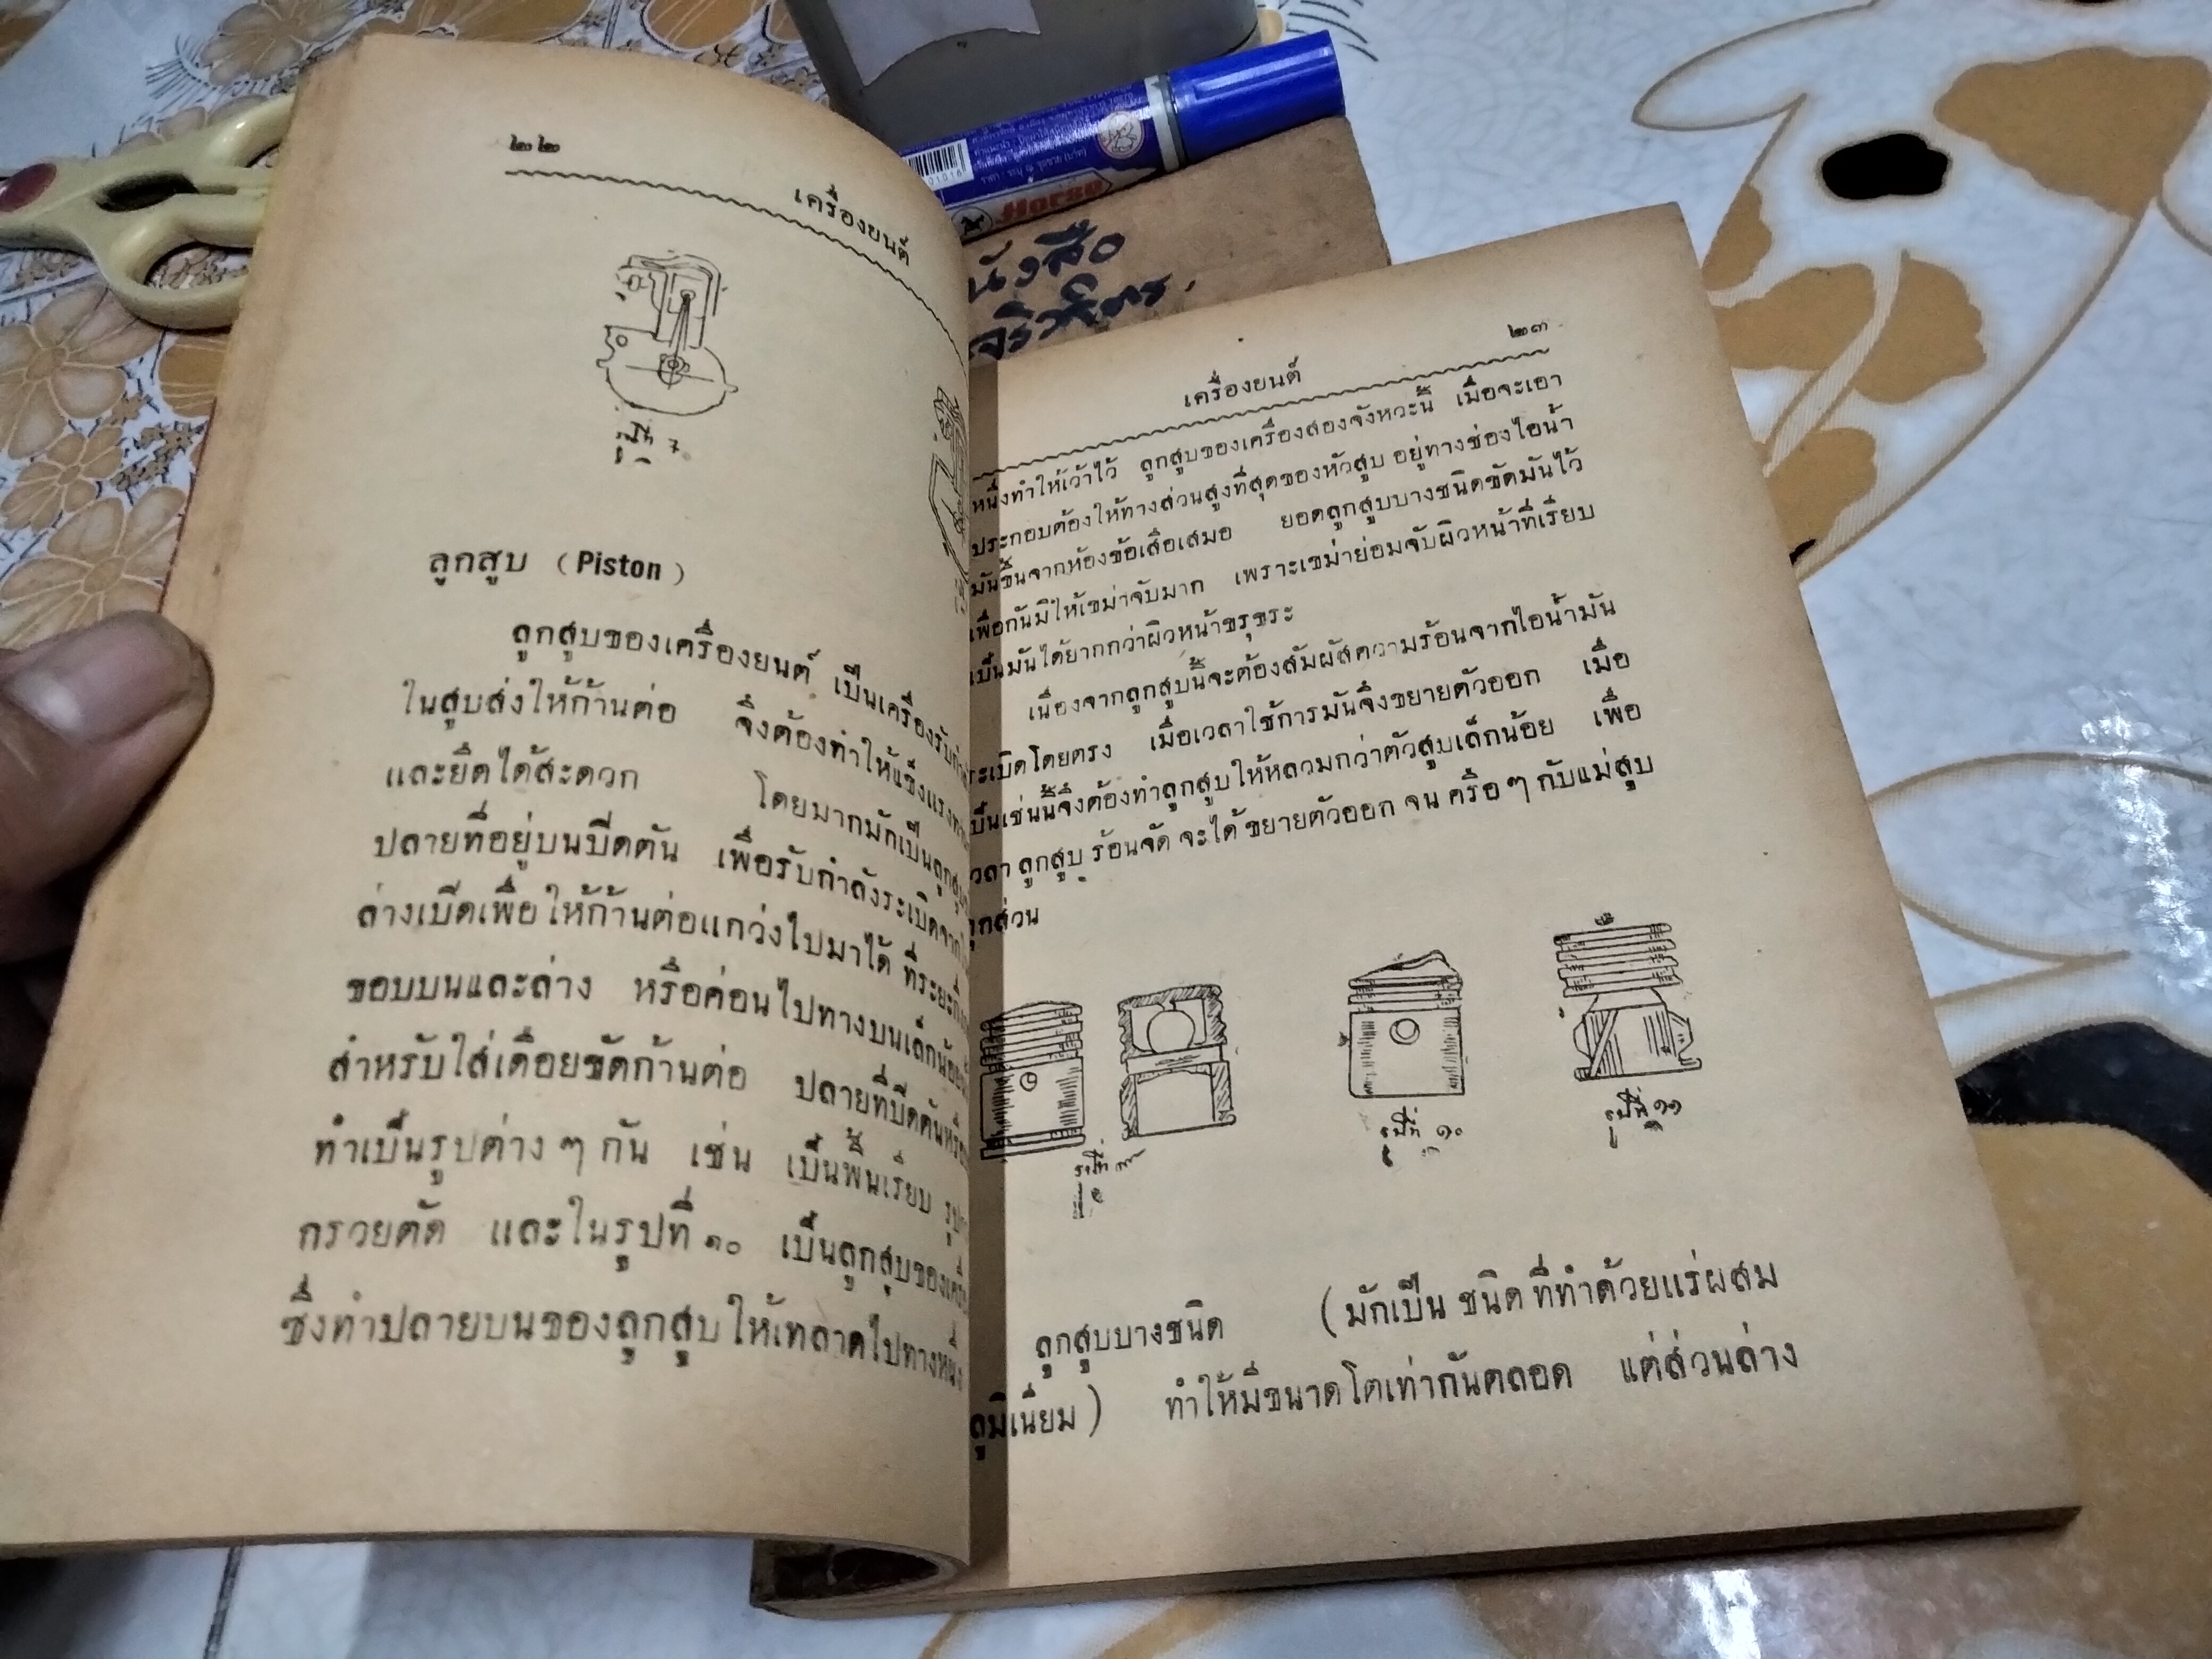 ๒๒
เครื่องยนต์
รูปที่ ๗
ลูกสูบ (Piston)
ลูกสูบของเครื่องยนต์ เป็นเครื่องรับกำ
ในสูบส่งให้ก้านต่อ จึงต้องทำให้แข็งแรง
และยึดได้สะดวก โดยมากมักเป็นลูกสูบ
ปลายที่อยู่บนปิดตัน เพื่อรับกำลังระเบิดจาก
ล่างเปิดเพื่อให้ก้านต่อแกว่งไปมาได้ ที่ระยะกึ่ง
ขอบบนและล่าง หรือค่อนไปทางบนเล็กน้อย
สำหรับใส่เดือยขัดก้านต่อ ปลายที่ปิดตันหรือ
ทำเป็นรูปต่าง ๆ กัน เช่น เป็นพื้นเรียบ รูป
กรวยตัด และในรูปที่ ๑๐ เป็นลูกสูบของเครื่อง
ซึ่งทำปลายบนของลูกสูบให้เทลาดไปทางหนึ่ง
Horse
หนังสือ
๒๓
เครื่องยนต์
หนึ่งทำให้เว้าไว้ ลูกสูบของเครื่องสองจังหวะนี้ เมื่อจะเอา
ประกอบต้องให้ทางส่วนสูงที่สุดของหัวสูบ อยู่ทางช่องไอน้ำ
มันขึ้นจากห้องข้อเสือเสมอ ยอดลูกสูบบางชนิดขัดมันไว้
เพื่อกันมิให้เขม่าจับมาก เพราะเขม่าย่อมจับผิวหน้าที่เรียบ
เป็นมันได้ยากกว่าผิวหน้าขรุขระ
เนื่องจากลูกสูบนี้จะต้องสัมผัสความร้อนจากไอน้ำมัน
ระเบิดโดยตรง เมื่อเวลาใช้การมันจึงขยายตัวออก เมื่อ
เป็นเช่นนี้จึงต้องทำลูกสูบให้หลวมกว่าตัวสูบเล็กน้อย เพื่อ
เวลา ลูกสูบ ร้อนจัด จะได้ ขยายตัวออก จน ครือ ๆ กับแม่สูบ
ทุกส่วน
รูปที่ ๙
รูปที่ ๑๐
รูปที่ ๑๑
ลูกสูบบางชนิด (มักเป็น ชนิด ที่ทำด้วยแร่ผสม
ลูมิเนี่ยม) ทำให้มีขนาดโตเท่ากันตลอด แต่ส่วนล่าง